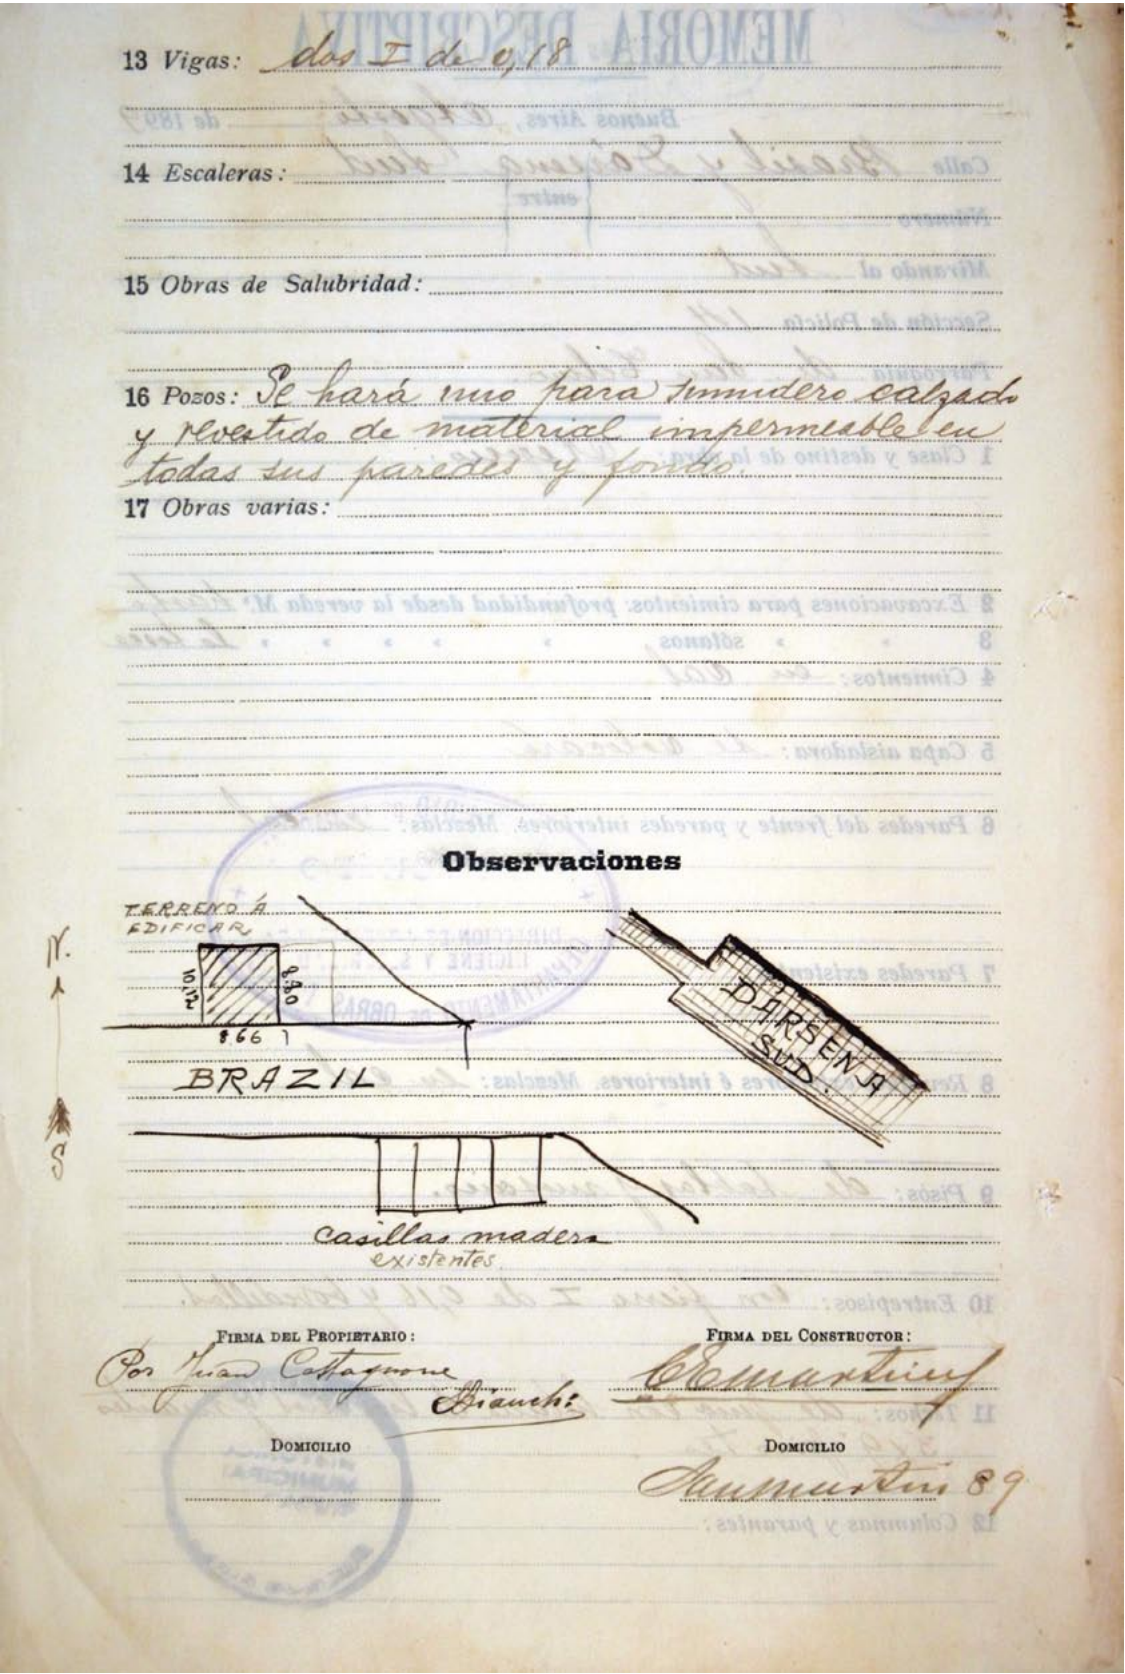 13 Vigas: dos I de 0,18
14 Escaleras:
15 Obras de Salubridad:
16 Pozos: Se hará uno para sumidero calzado
y revestido de material impermeable en
todas sus paredes y fondo.
17 Obras varias:
Observaciones
TERRENO Á
EDIFICAR
N.
10,12
8,80
8.66
DARSENA
SUD.
BRAZIL
S
casillas madera
existentes
FIRMA DEL PROPIETARIO:
FIRMA DEL CONSTRUCTOR:
Por Juan Castagnone
Bianchi
DOMICILIO
DOMICILIO
San martin 89